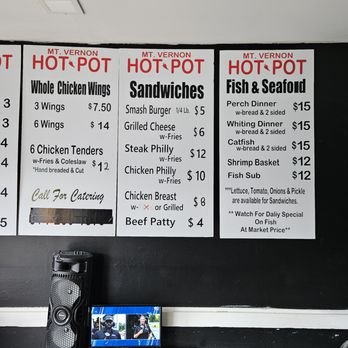 HOT POT
T
3
3
4
4
5
MT. VERNON
HOT POT
Whole Chicken Wings
3 Wings $7.50
6 Wings $ 14
6 Chicken Tenders
w-Fries & Coleslaw $12
*Hand breaded & Cut
Call For Catering
MT. VERNON
HOT POT
Sandwiches
Smash Burger 1/4 Lb. $ 5
Grilled Cheese $ 6
w-Fries
Steak Philly $ 12
w-Fries
Chicken Philly $ 10
w-Fries
Chicken Breast $ 8
w- or Grilled
Beef Patty $ 4
MT. VERNON
HOT POT
Fish & Seafood
Perch Dinner $15
w-bread & 2 sided
Whiting Dinner $15
w-bread & 2 sided
Catfish $15
w-bread & 2 sided
Shrimp Basket $12
Fish Sub $12
***Lettuce, Tomato, Onions & Pickle
are available for Sandwiches.
** Watch For Daily Special
On Fish
At Market Price**